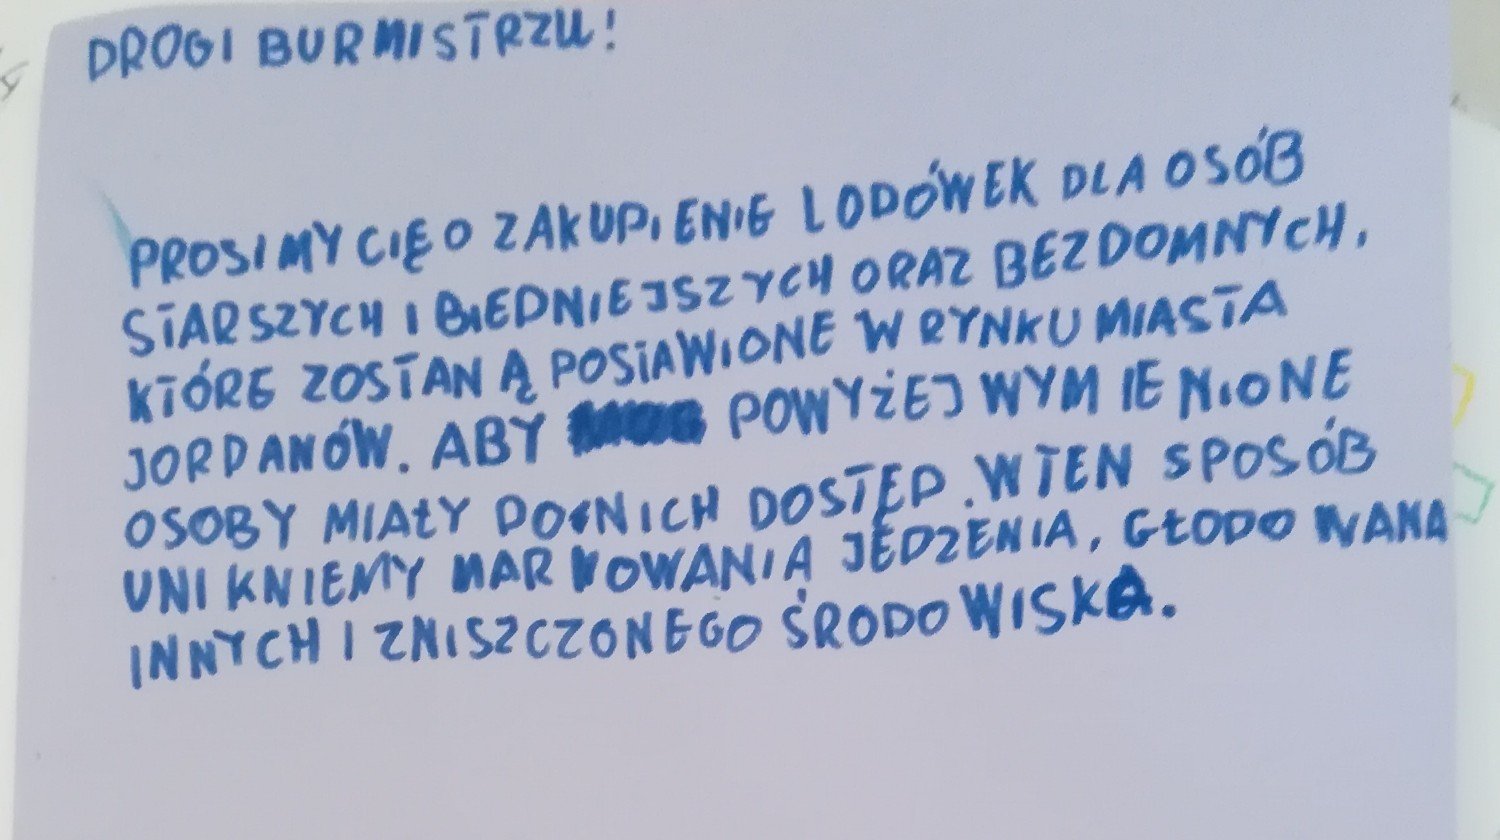 DROGI BURMISTRZU!
PROSIMY CIĘ O ZAKUPIENIE LODÓWEK DLA OSÓB
STARSZYCH I BIEDNIEJSZYCH ORAZ BEZDOMNYCH,
KTÓRE ZOSTANĄ POSTAWIONE W RYNKU MIASTA
JORDANÓW. ABY POWYŻEJ WYMIENIONE
OSOBY MIAŁY DO NICH DOSTĘP. W TEN SPOSÓB
UNIKNIEMY MARNOWANIA JEDZENIA, GŁODOWANA
INNYCH I ZNISZCZONEGO ŚRODOWISKA.